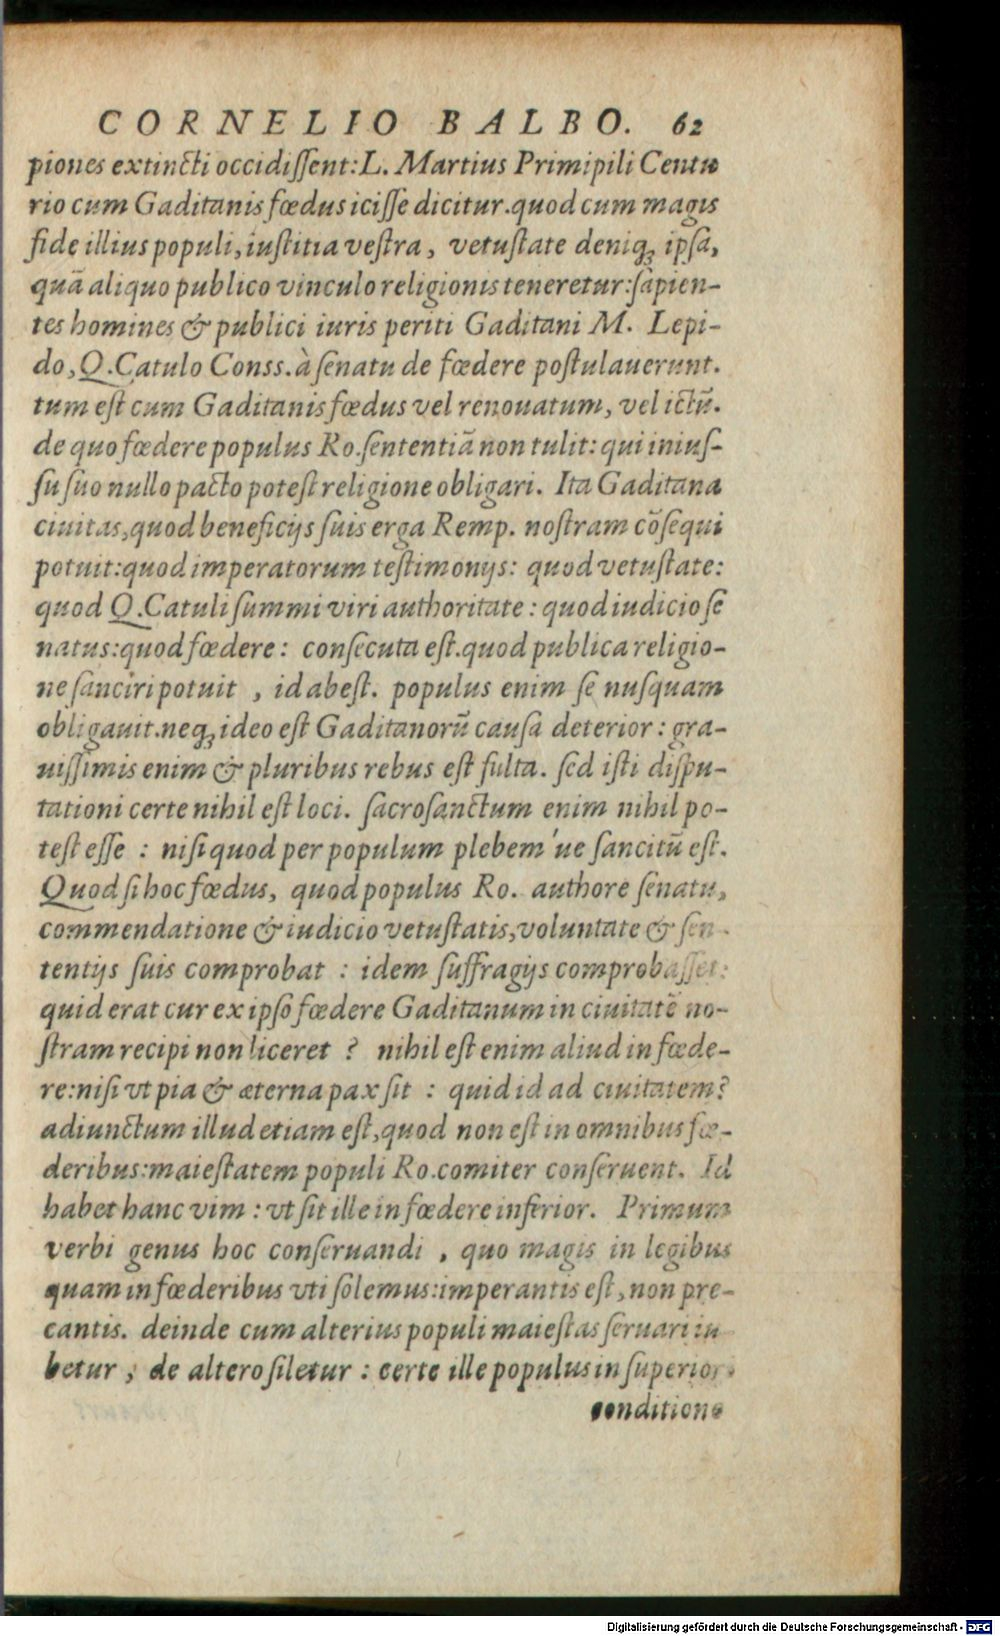 CORNELIO BALBO. 62
piones extincti occidiſſent: L. Martius Primipili Centu
rio cum Gaditanis fœdus iciſſe dicitur. quod cum magis
fide illius populi, iuſtitia veſtra, vetuſtate deniqꝫ ipſa,
quā aliquo publico vinculo religionis teneretur: ſapien-
tes homines & publici iuris periti Gaditani M. Lepi-
do, Q. Catulo Conss. à ſenatu de fœdere poſtulauerunt.
tum eſt cum Gaditanis fœdus vel renouatum, vel ictū.
de quo fœdere populus Ro. ſententiā non tulit: qui iniuſ-
ſu ſuo nullo pacto poteſt religione obligari. Ita Gaditana
ciuitas, quod beneficijs ſuis erga Remp. noſtram cōſequi
potuit: quod imperatorum teſtimonijs: quod vetuſtate:
quod Q. Catuli ſummi viri authoritate: quod iudicio ſe
natus: quod fœdere: conſecuta eſt. quod publica religio-
ne ſanciri potuit, id abeſt. populus enim ſe nuſquam
obligauit. neqꝫ ideo eſt Gaditanorū cauſa deterior: gra-
uiſſimis enim & pluribus rebus eſt fulta. ſed iſti diſpu-
tationi certe nihil eſt loci. ſacroſanctum enim nihil po-
teſt eſſe: niſi quod per populum plebem've ſancitū eſt.
Quod ſi hoc fœdus, quod populus Ro. authore ſenatu,
commendatione & iudicio vetuſtatis, voluntate & ſen-
tentijs ſuis comprobat: idem ſuffragijs comprobaſſet:
quid erat cur ex ipſo fœdere Gaditanum in ciuitatē no-
ſtram recipi non liceret? nihil eſt enim aliud in fœde-
re: niſi vt pia & æterna pax ſit: quid id ad ciuitatem?
adiunctum illud etiam eſt, quod non eſt in omnibus fœ-
deribus: maieſtatem populi Ro. comiter conſeruent. Id
habet hanc vim: vt ſit ille in fœdere inferior. Primum
verbi genus hoc conſeruandi, quo magis in legibus
quam in fœderibus vti ſolemus: imperantis eſt, non pre-
cantis. deinde cum alterius populi maieſtas ſeruari iu-
betur, de altero ſiletur: certe ille populus in ſuperiori
conditione
Digitalisierung gefördert durch die Deutsche Forschungsgemeinschaft - DFG